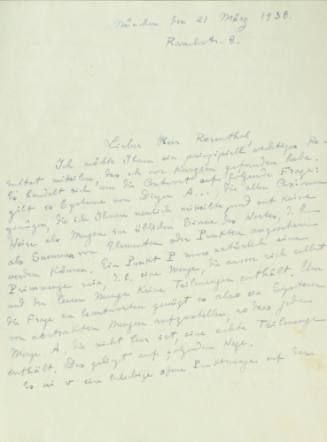 München den 21 März 1938.
Rambergstr. 8.
Lieber Herr Rosenthal
Ich möchte Ihnen ein prinzipiell wichtiges Re-
sultat mitteilen, das ich vor Kurzem gefunden habe.
Es handelt sich um die Antwort auf folgende Frage:
gibt es Systeme von Dingen A... die allen Axiomen
genügen, die ich Ihnen neulich mitteilte und auf keine
Weise als Mengen im üblichen Sinne des Wortes, d. h.
als Summen von Elementen oder Punkten angesehen
werden können. Ein Punkt P muss natürlich eine
sein, d. h. eine Menge, die ausser sich selbst
und der leeren Menge keine Teilmengen enthält. Um
die Frage zu beantworten genügt es also ein System
von abstrakten Mengen aufzustellen, so dass jede
Menge A, die nicht leer ist, eine echte Teilmenge
enthält. Das gelingt auf folgendem Wege.
Es sei v eine beliebige offene Punktmenge auf